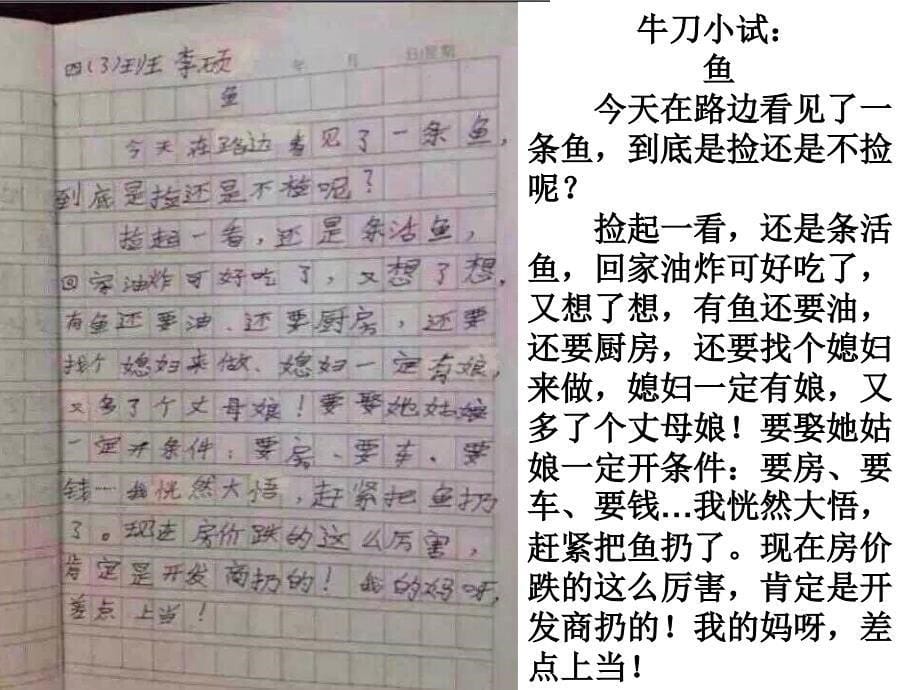 四(3)班 李硕
年 月 日 星期
鱼
今天在路边看见了一条鱼,
到底是捡还是不捡呢?
捡起一看,还是条活鱼,
回家油炸可好吃了,又想了想,
有鱼还要油、还要厨房,还要
找个媳妇来做、媳妇一定有娘,
又多了个丈母娘!要娶她姑娘
一定开条件:要房、要车、要
钱……我恍然大悟,赶紧把鱼扔
了。现在房价跌的这么厉害,
肯定是开发商扔的!我的妈呀,
差点上当!
牛刀小试:
鱼
今天在路边看见了一
条鱼,到底是捡还是不捡
呢?
捡起一看,还是条活
鱼,回家油炸可好吃了,
又想了想,有鱼还要油,
还要厨房,还要找个媳妇
来做,媳妇一定有娘,又
多了个丈母娘!要娶她姑
娘一定开条件:要房、要
车、要钱…我恍然大悟,
赶紧把鱼扔了。现在房价
跌的这么厉害,肯定是开
发商扔的!我的妈呀,差
点上当!